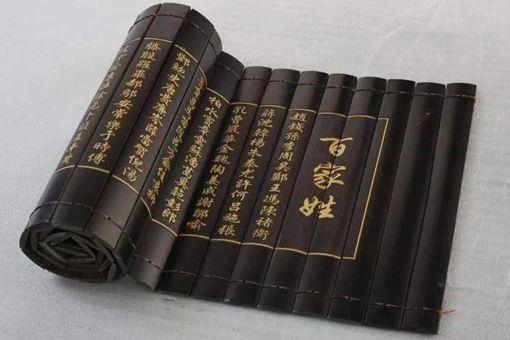 百家姓
趙錢孫李周吳鄭王馮陳褚衛
蔣沈韓楊朱秦尤許何呂施張
孔曹嚴華金魏陶姜戚謝鄒喻
柏水竇章雲蘇潘葛奚彭郎
酆鮑史唐費廉岑薛雷賀倪湯
滕殷羅畢郝鄔安常樂于時傅